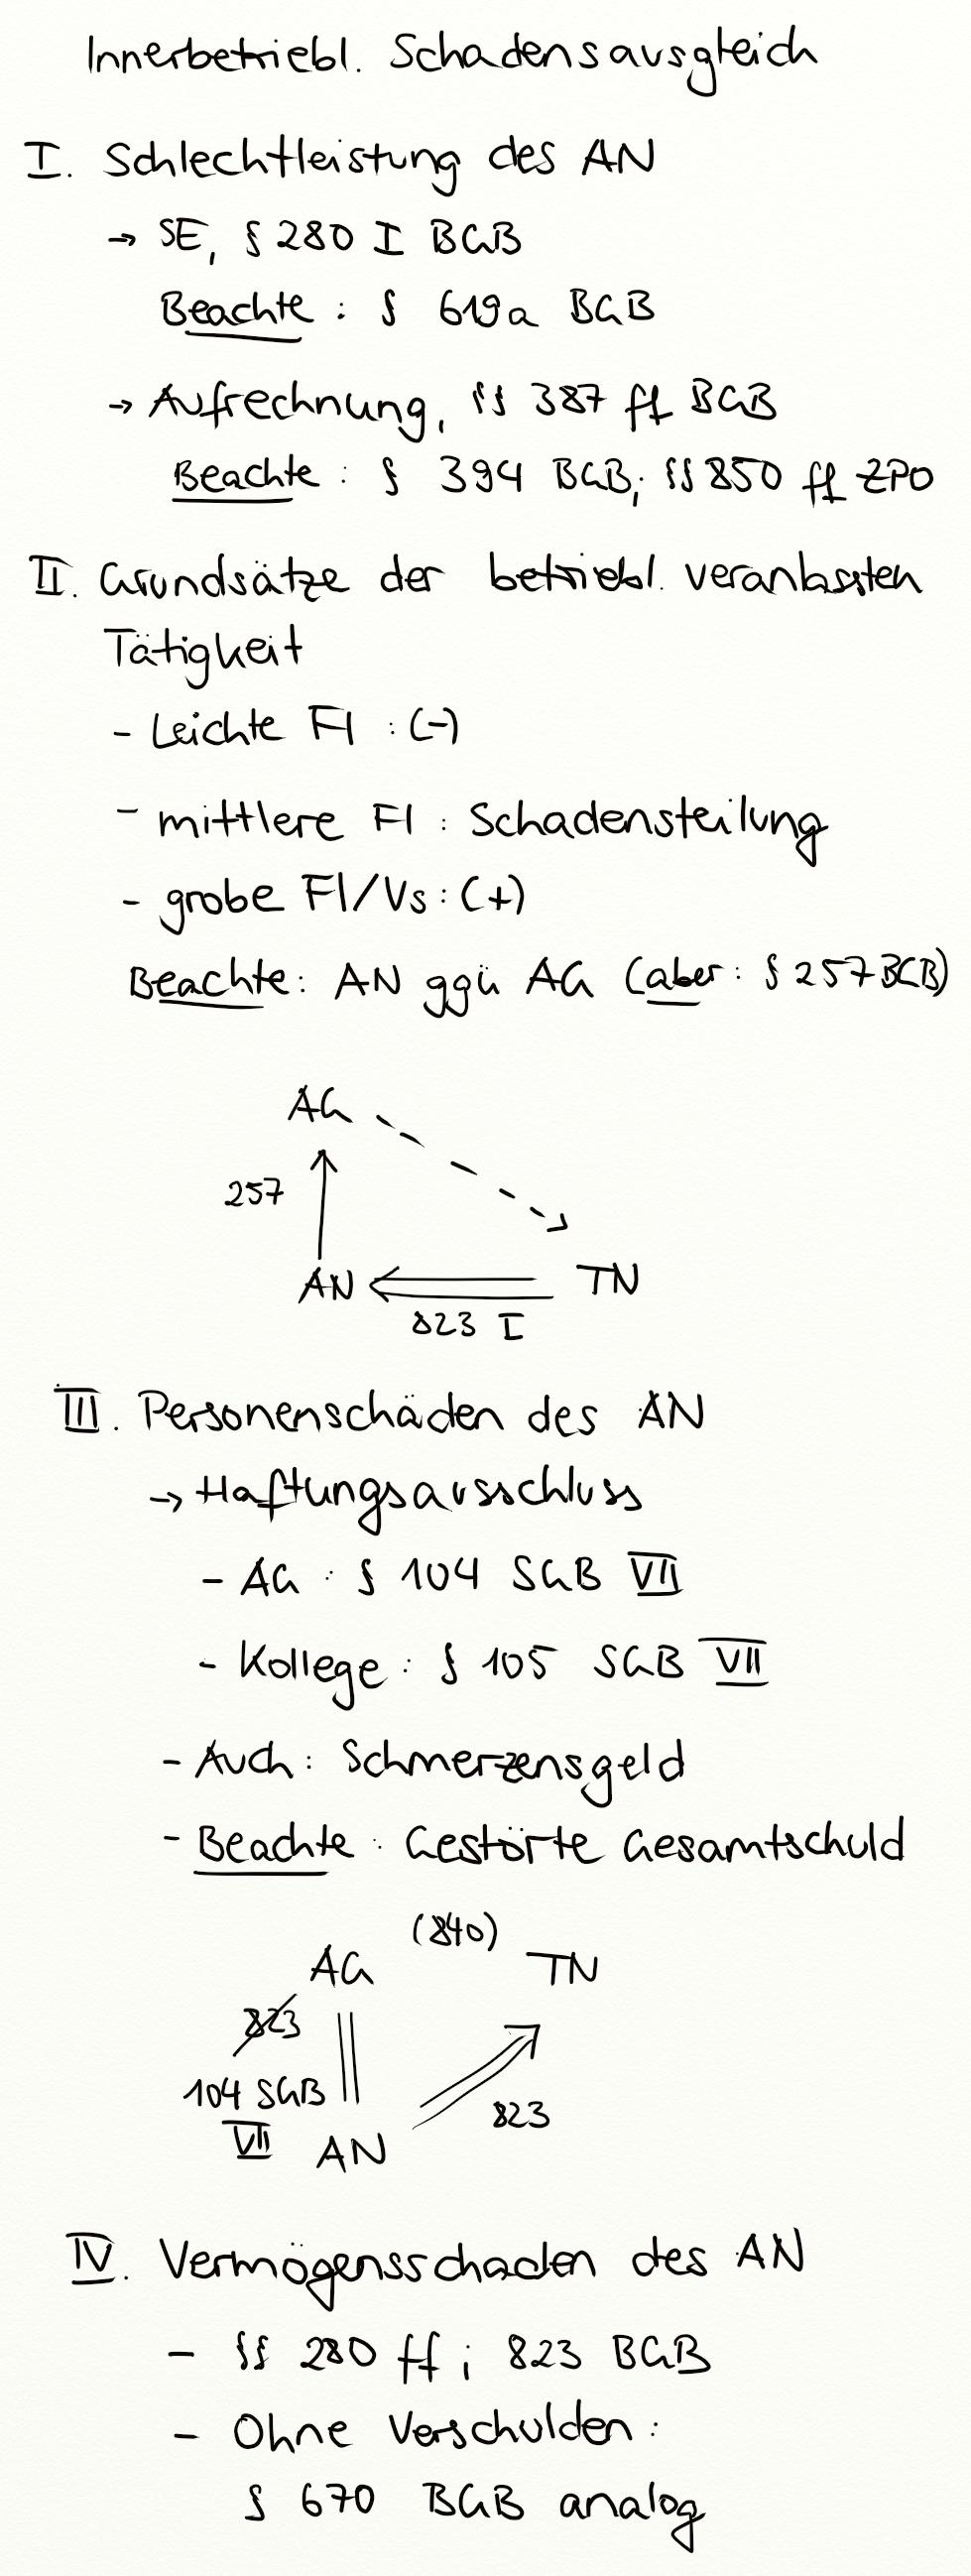 Innerbetriebl. Schadensausgleich
I. Schlechtleistung des AN
→ SE, § 280 I BGB
Beachte: § 619a BGB
→ Aufrechnung, §§ 387 ff BGB
Beachte: § 394 BGB; §§ 850 ff ZPO
II. Grundsätze der betriebl. veranlassten
Tätigkeit
- Leichte Fl: (-)
- mittlere Fl: Schadensteilung
- grobe Fl/Vs: (+)
Beachte: AN ggü AG (aber: § 257 BGB)
AG
257
AN TN
823 I
III. Personenschäden des AN
→ Haftungsausschluss
- AG: § 104 SGB VII
- Kollege: § 105 SGB VII
- Auch: Schmerzensgeld
- Beachte: Gestörte Gesamtschuld
(840)
AG TN
823
104 SGB
823
VII AN
IV. Vermögensschaden des AN
- §§ 280 ff; 823 BGB
- Ohne Verschulden:
§ 670 BGB analog